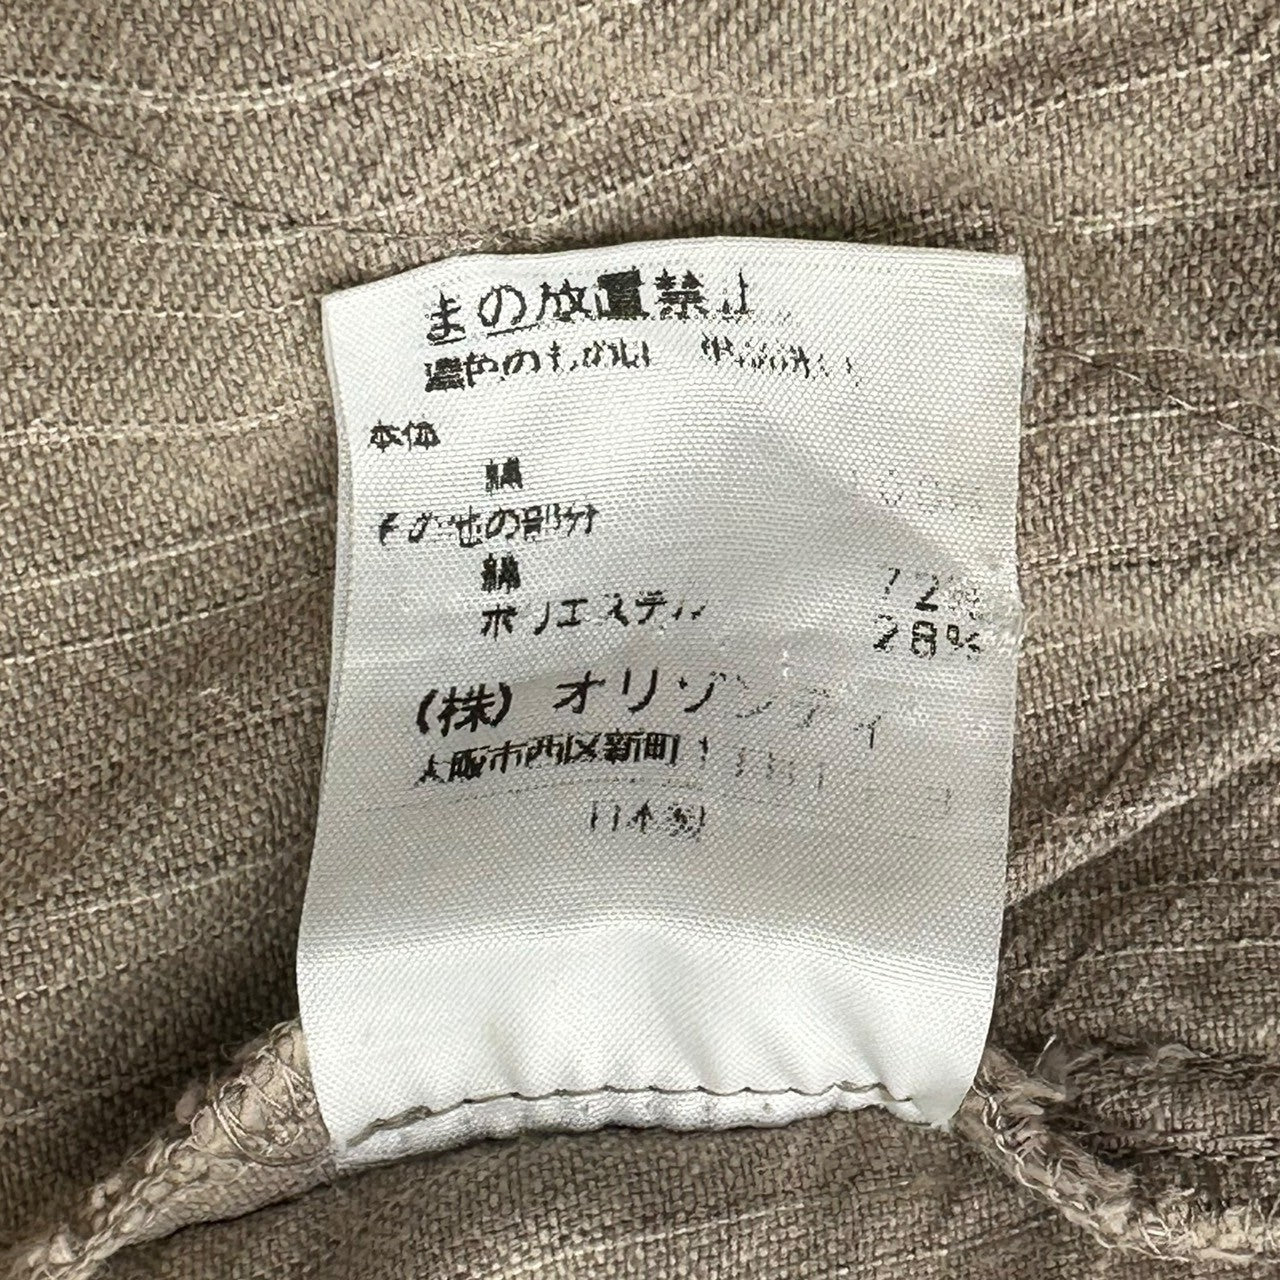 まの放置禁止
濃色のものは 単独洗い
本体
綿
その他の部分
綿 72%
ポリエステル 28%
(株) オリゾンティ
大阪市西区新町1
日本製